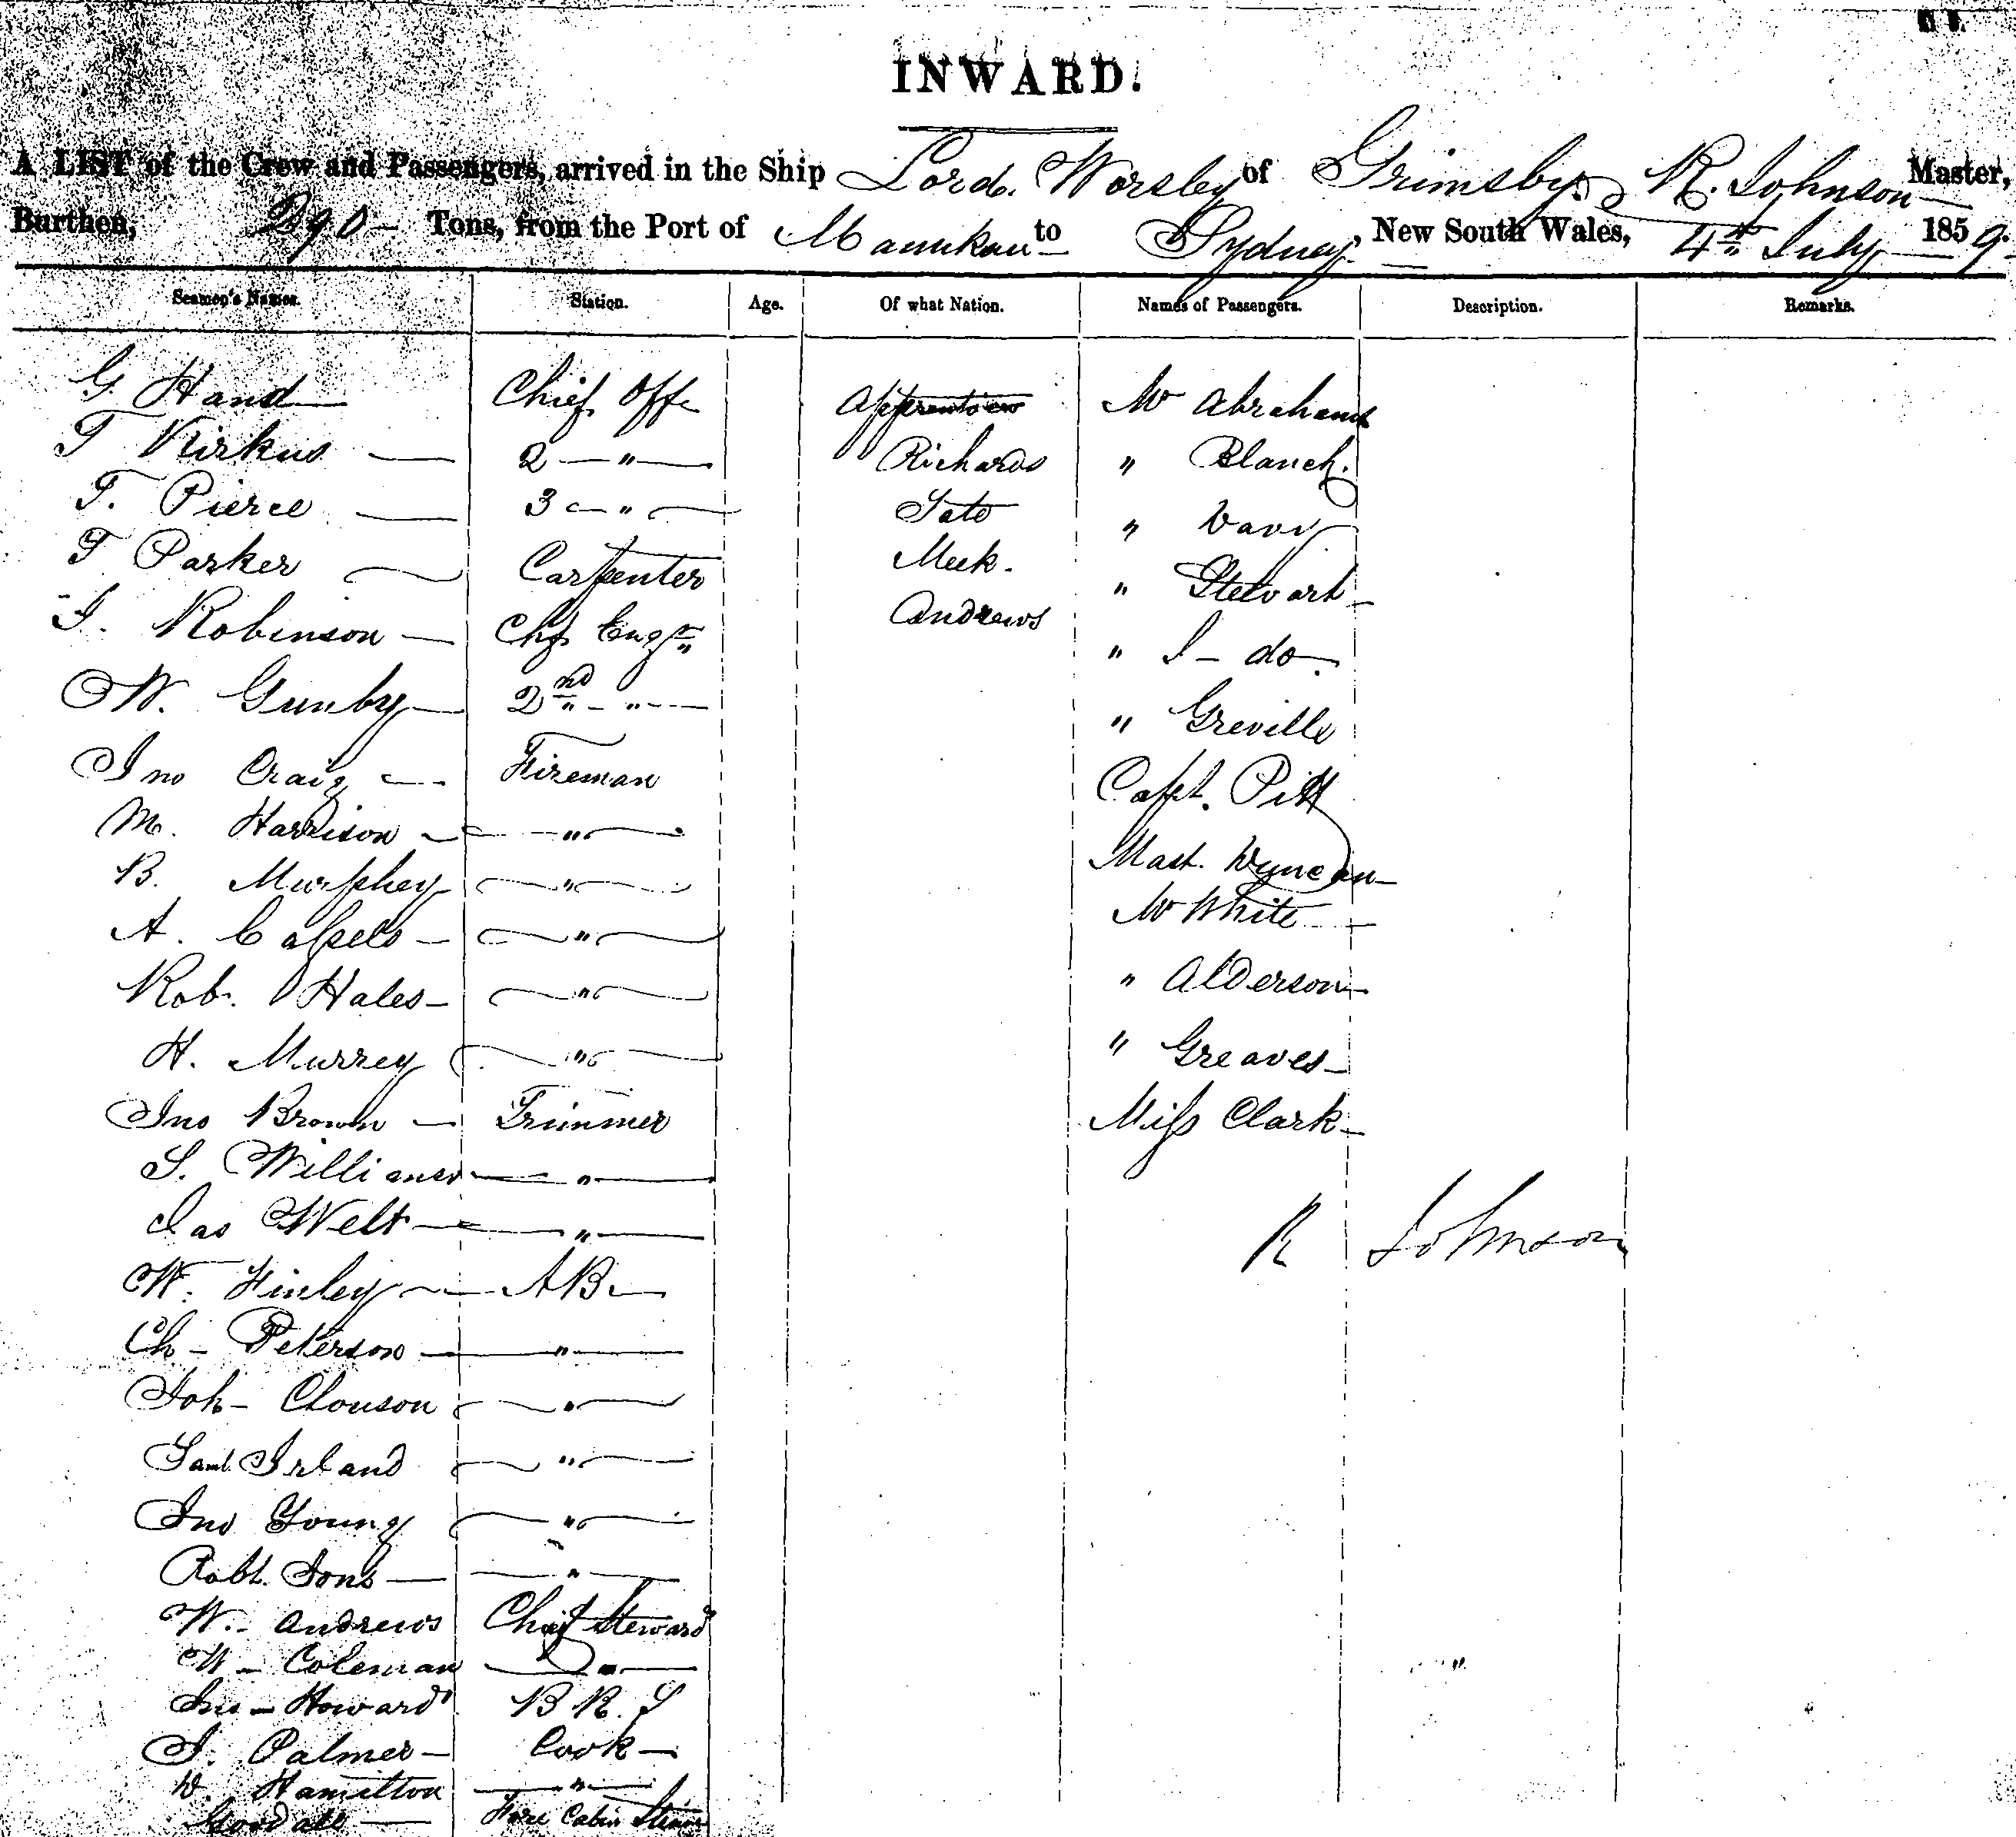 INWARD.
A LIST of the Crew and Passengers, arrived in the Ship Lord Worsley of Grimsby, R. Johnson Master,
Burthen, 290 Tons, from the Port of Manukau to Sydney, New South Wales, 4th July 1859.
Seamen's Names. Station. Age. Of what Nation. Names of Passengers. Description. Remarks.
G. Hand — Chief Offr Apprentices Mr Abrahams
T Kirkus — 2 — " — Richards " Blanch.
T. Pierce — 3 — " — Tate " Davy
T Parker — Carpenter Meek. " Stewart —
J. Robinson — Chf Engr Andrews " J — do —
W. Gunby — 2nd " — " — " Greville
Jno Craig — Fireman Capt. Pitt
M. Harrison — " — Mast. Duncan —
B. Murphey — " — Mr White —
A. Cassels — " —
Rob. Hales — " — " Alderson —
H. Murrey — " — " Greaves —
Jno Brown — Trimmer Miss Clark —
S. Williams — " —
Jas Welt — " — R Johnson
W. Finley — AB —
Ch — Peterson — " —
Joh — Clouson — " —
Saml. Irland — " —
Jno Young — " —
Robt. Sons — " —
W. — Andrews Chief Steward
W — Coleman 2 — " —
Jno — Howard B R. S
J. Palmer — Cook —
D. Hamilton — " —
Goodall — Fore Cabin